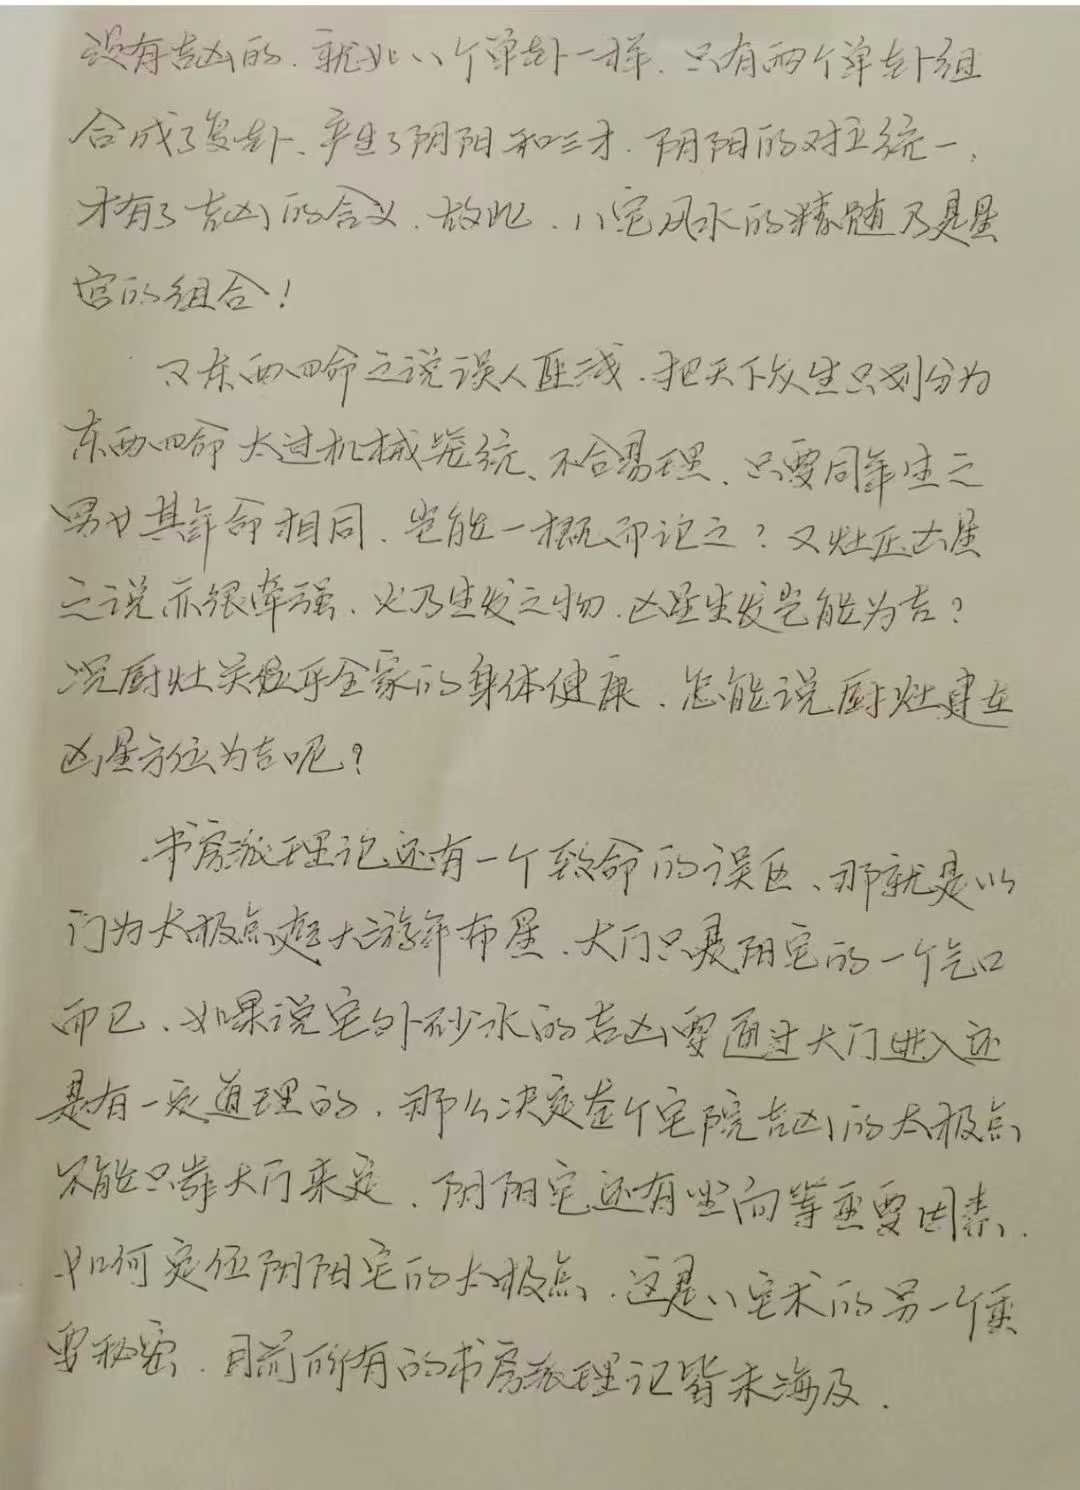 没有吉凶的、就如八个单卦一样、只有两个单卦组
合成了复卦、产生了阴阳和三才、阴阳的对立统一、
才有了吉凶的含义、故此、八宅风水的精髓乃是星
宫的组合!
又东西四命之说误人匪浅、把天下众生只划分为
东西四命太过机械笼统、不合易理、只要同年生之
男女其年命相同、岂能一概而论之?又灶压凶星
之说亦很牵强、火乃生发之物、凶星生发岂能为吉?
况厨灶关系乎全家的身体健康、怎能说厨灶建在
凶星方位为吉呢?
书房派理论还有一个致命的误区、那就是以
门为太极点起大游年布星、大门只是阳宅的一个气口
而已、如果说宅外砂水的吉凶要通过大门进入还
是有一定道理的、那么决定整个宅院吉凶的太极点
不能只靠大门来定、阴阳宅还有坐向等重要因素、
如何定位阴阳宅的太极点、这是八宅术的另一个重
要秘密、目前所有的书房派理论皆未涉及.